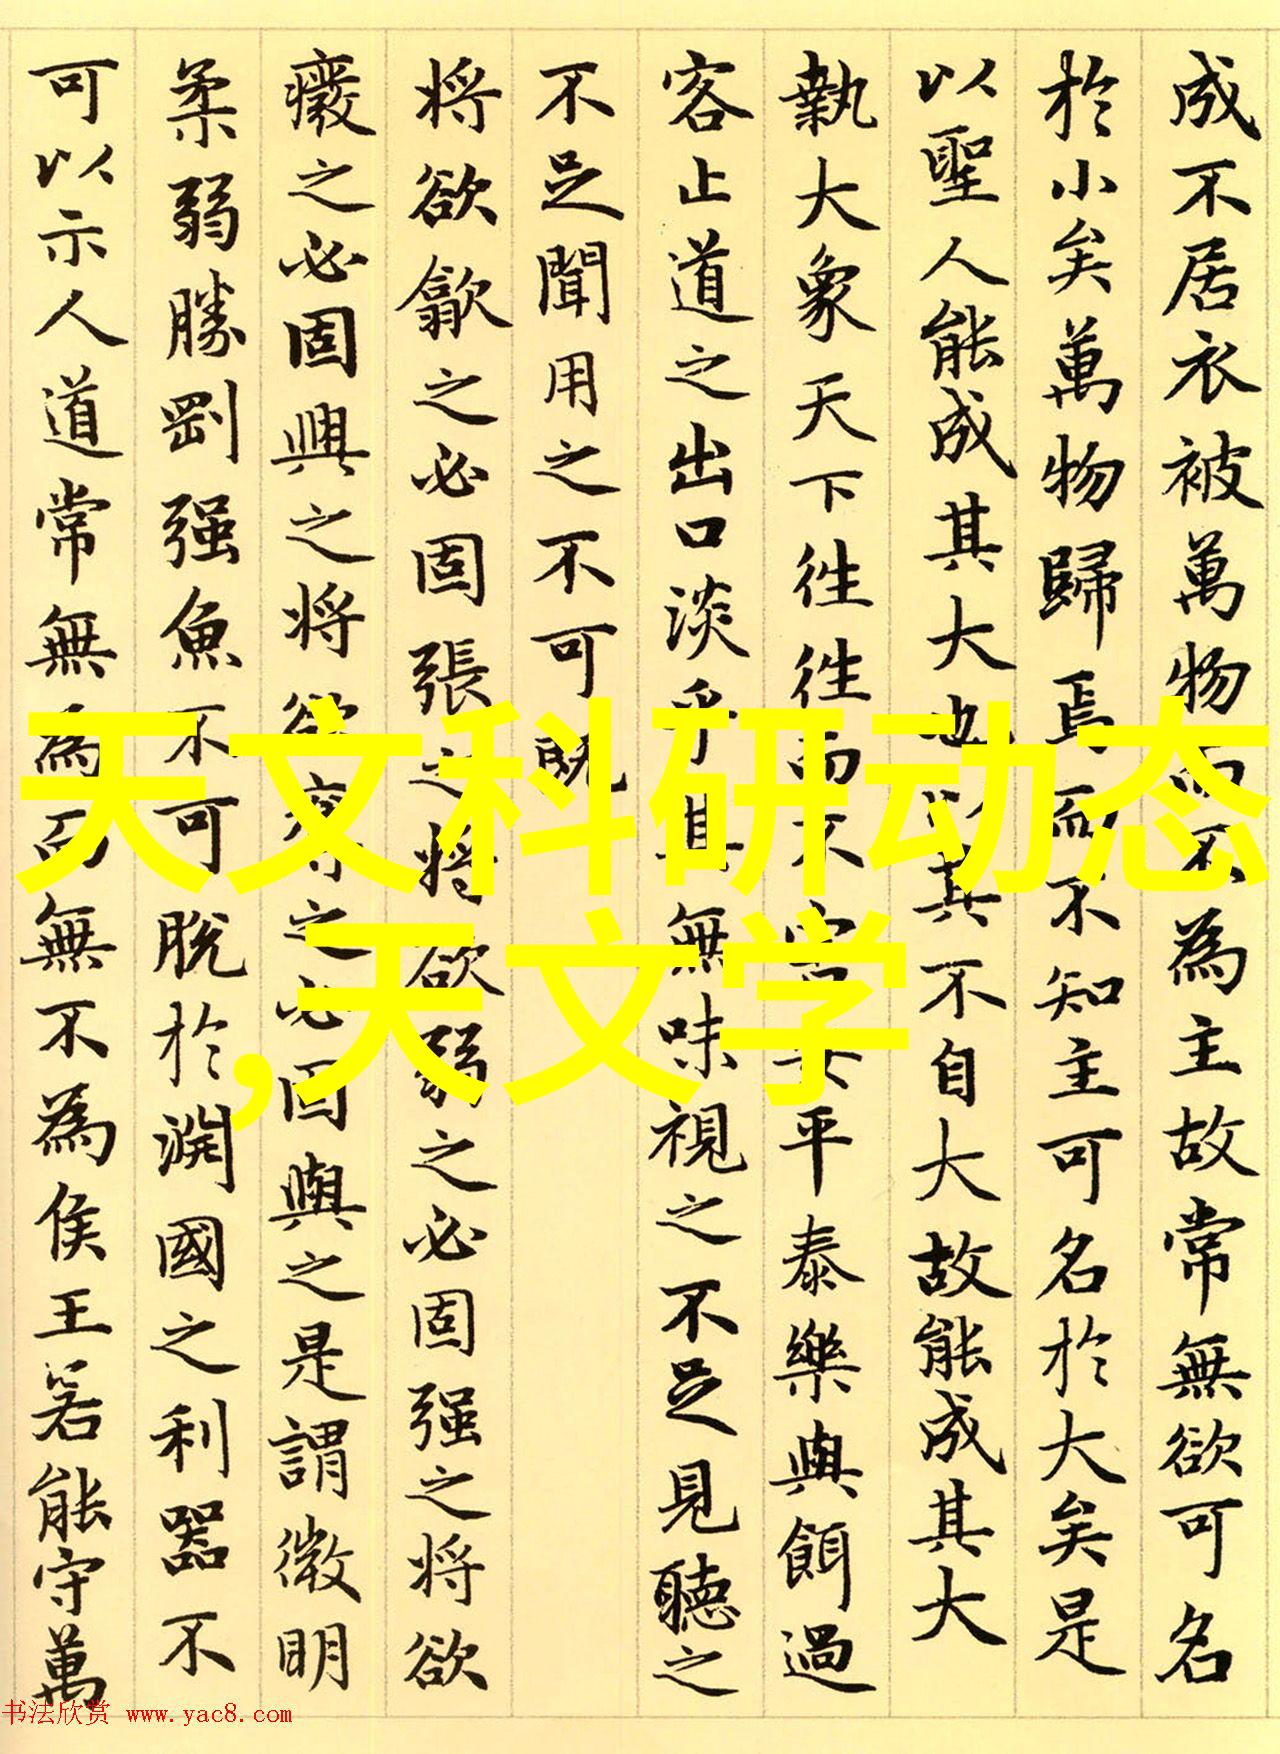 成不居衣被萬物而不為主故常無欲可名
於小矣萬物歸焉而不知主可名於大矣是
以聖人能成其大也以其不自大故能成其大
執大象天下往往而不害安平泰樂與餌過
客止道之出口淡乎其無味視之不足見聽之
不足聞用之不可既
将欲歙之必固張之将欲弱之必固强之将欲
癈之必固興之将欲奪之必固與之是謂微明
柔弱勝剛强魚不可脱於淵國之利器不
可以示人道常無為而無不為侯王若能守萬
天文科研动态
,天文学
书法欣赏 www.yac8.com